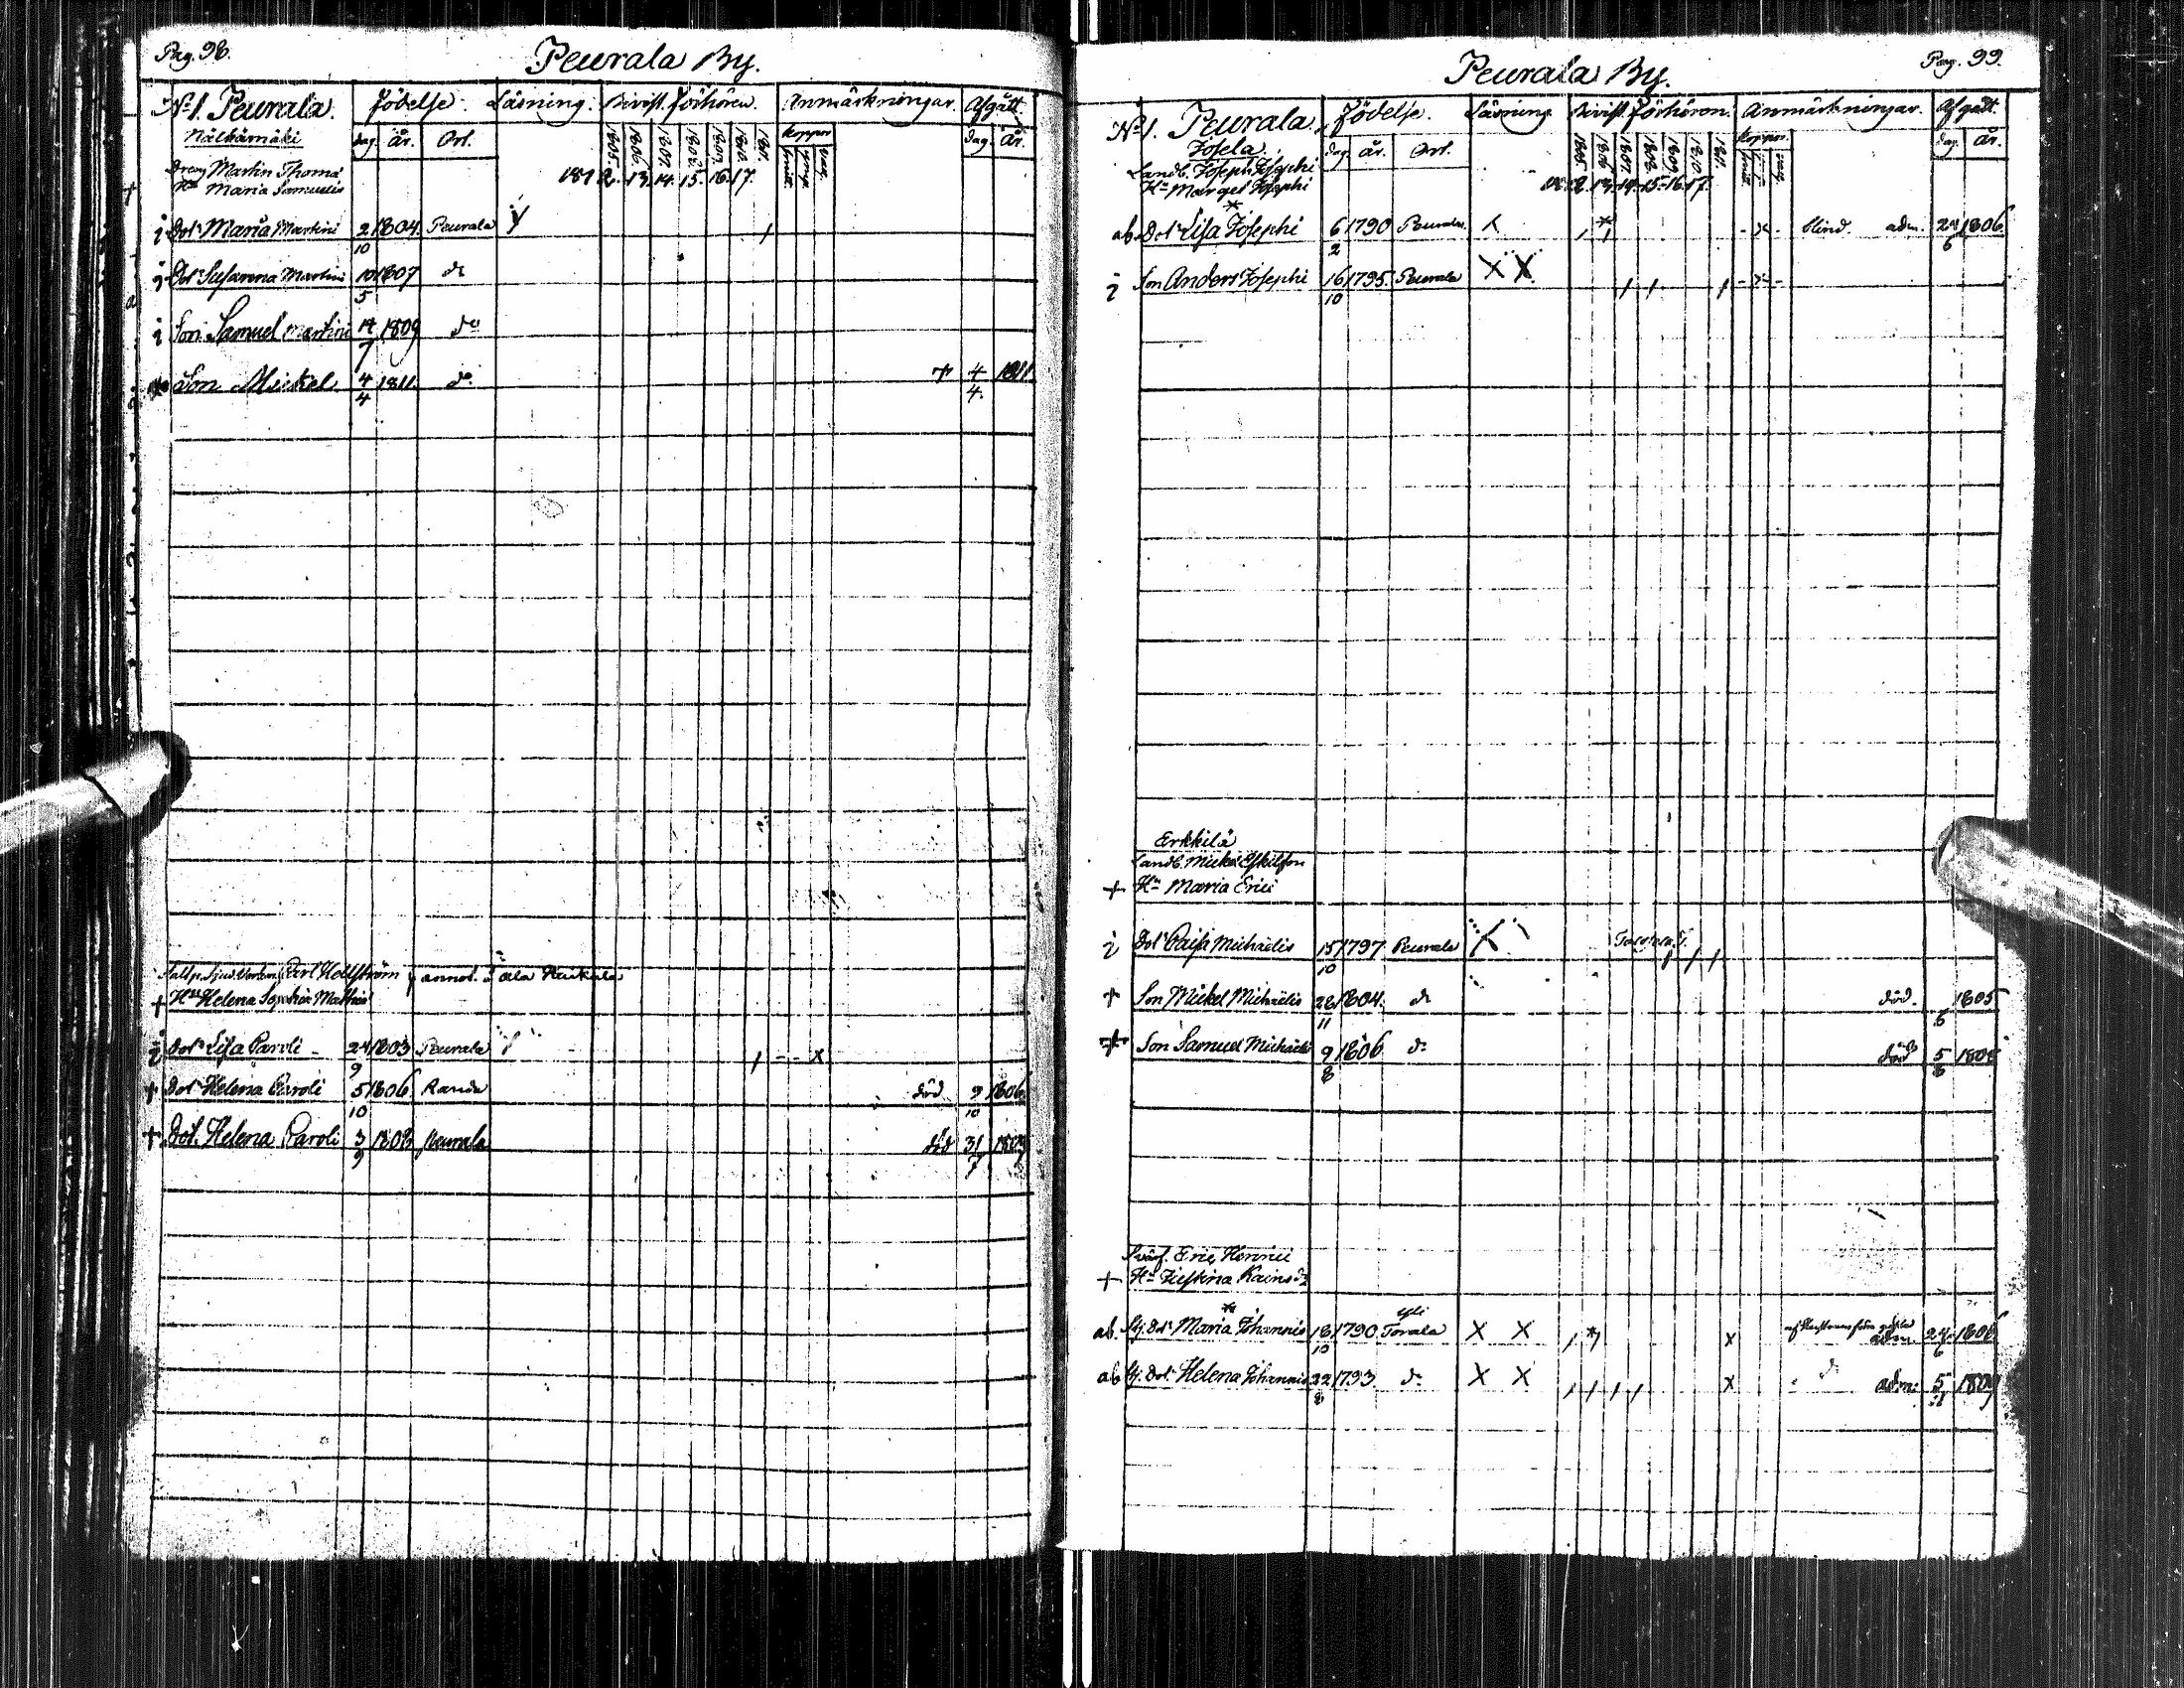 Pag. 98.
Peurala By.
No 1. Peurala.
Födelse. Läsning. Bivist. Förhören. Anmärkningar. Afgått.
Nälkämäki
dag. år. Ort.
1805. 1806. 1807. 1808. 1809. 1810. 1811.
koppor
dag. år.
Drag Martin Thomæ
Hu Maria Samuelis
1812. 13. 14. 15. 16. 17.
i Dotr Maria Martini 2/10 1804. Peurala
i Dotr Susanna Martini 10/5 1807 do
i Son Samuel Martini 14/7 1809 do
Son Mickel. 4/4 1811. do + 4/4. 1811.
Carl Hellström annol.
+ Hu Helena Sophia Matthiæ
i Dotr Lisa Caroli 24/9 1803 Peurala x
+ Dotr Helena Caroli 5/10 1806. Randa död 9/10 1806.
+ Dot. Helena Caroli 3/9 1808 Peurala död 31/7 1809
Pag. 99.
Peurala By.
No 1. Peurala.
Födelse. Läsning. Bivist. Förhören. Anmärkningar. Afgått.
Josela.
dag. år. Ort.
1805. 1806. 1807. 1808. 1809. 1810. 1811.
koppor.
dag. år.
Landb. Joseph Josephi
Hu Marget Josephi
1812. 13. 14. 15. 16. 17.
ab. Dotr Lisa Josephi 6/2 1790 Peurala. blind. adm. 24/6 1806.
i Son Anders Josephi 16/10 1795. Peurala X X
Erkkilä
Landb. Mickel Eskilson
+ Hu Maria Erici
i Dotr Caisa Michaelis 15/10 1797 Peurala
+ Son Mickel Michaelis 28/11 1804. do död. 1805
+ Son Samuel Michaelis 9/8 1806 do död 5/8 1808
Svåg. Eric Henrici
+ Hu Justina Kainsdr
ab. Maria Johannis 18/10 1790. Yli Torala X X x adm. 24/6 1806.
ab Dotr Helena Johannis 22/8 1793. do X X x do adm: 5/11 1809